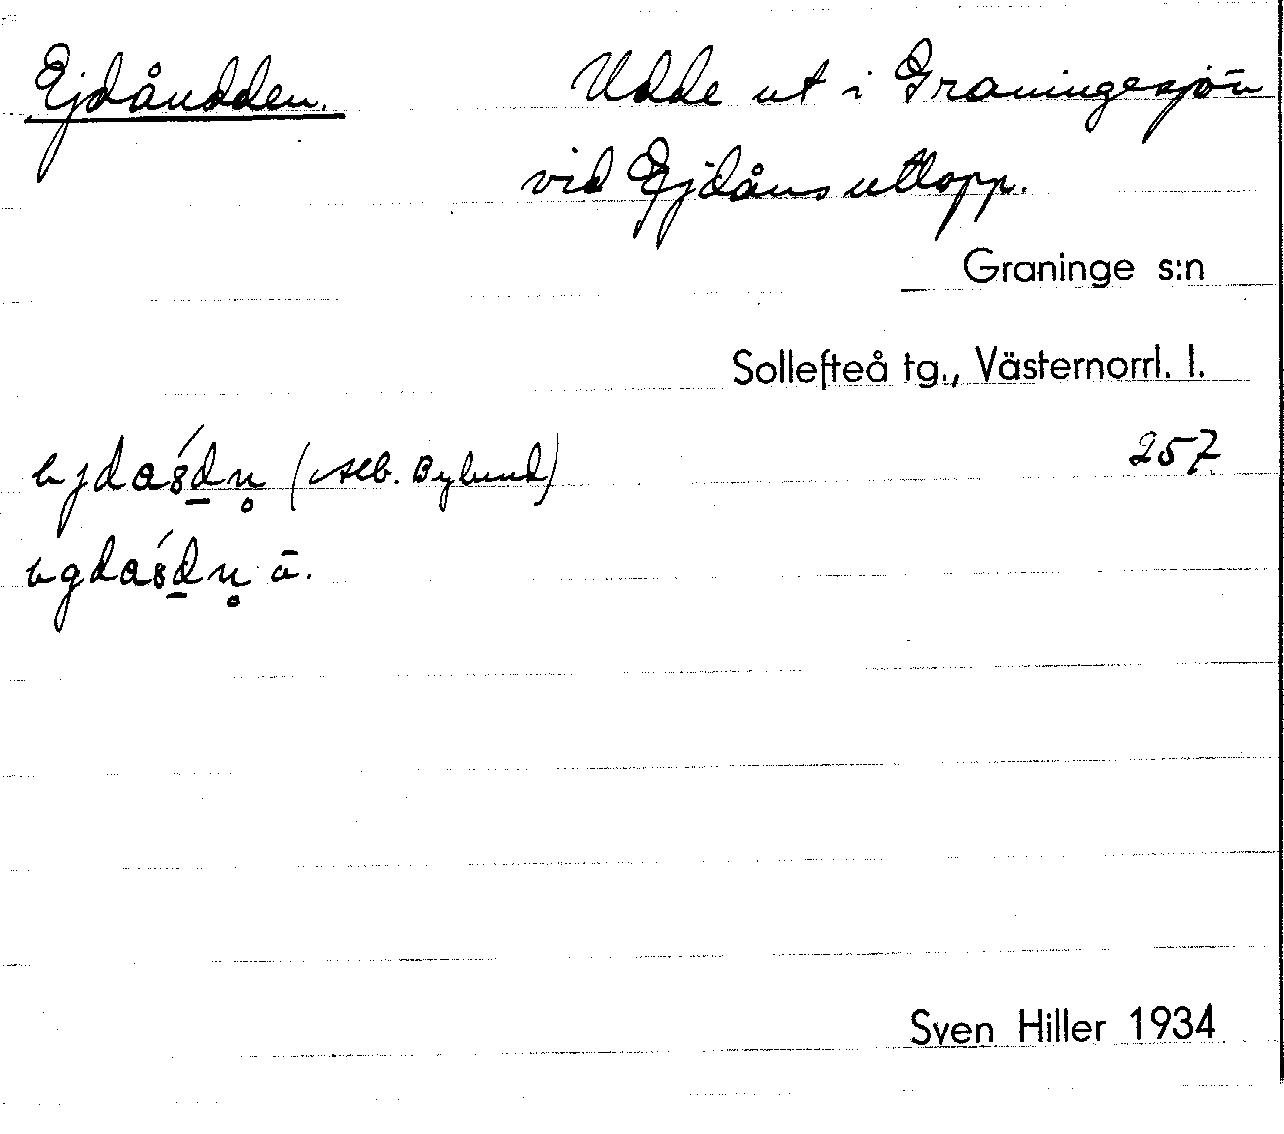 Ejdåudden. Udde ut i Graningesjön
vid Ejdåns utlopp.
Graninge s:n
Sollefteå tg., Västernorrl. l.
(Alb. Bylund) 257
ā.
Sven Hiller 1934